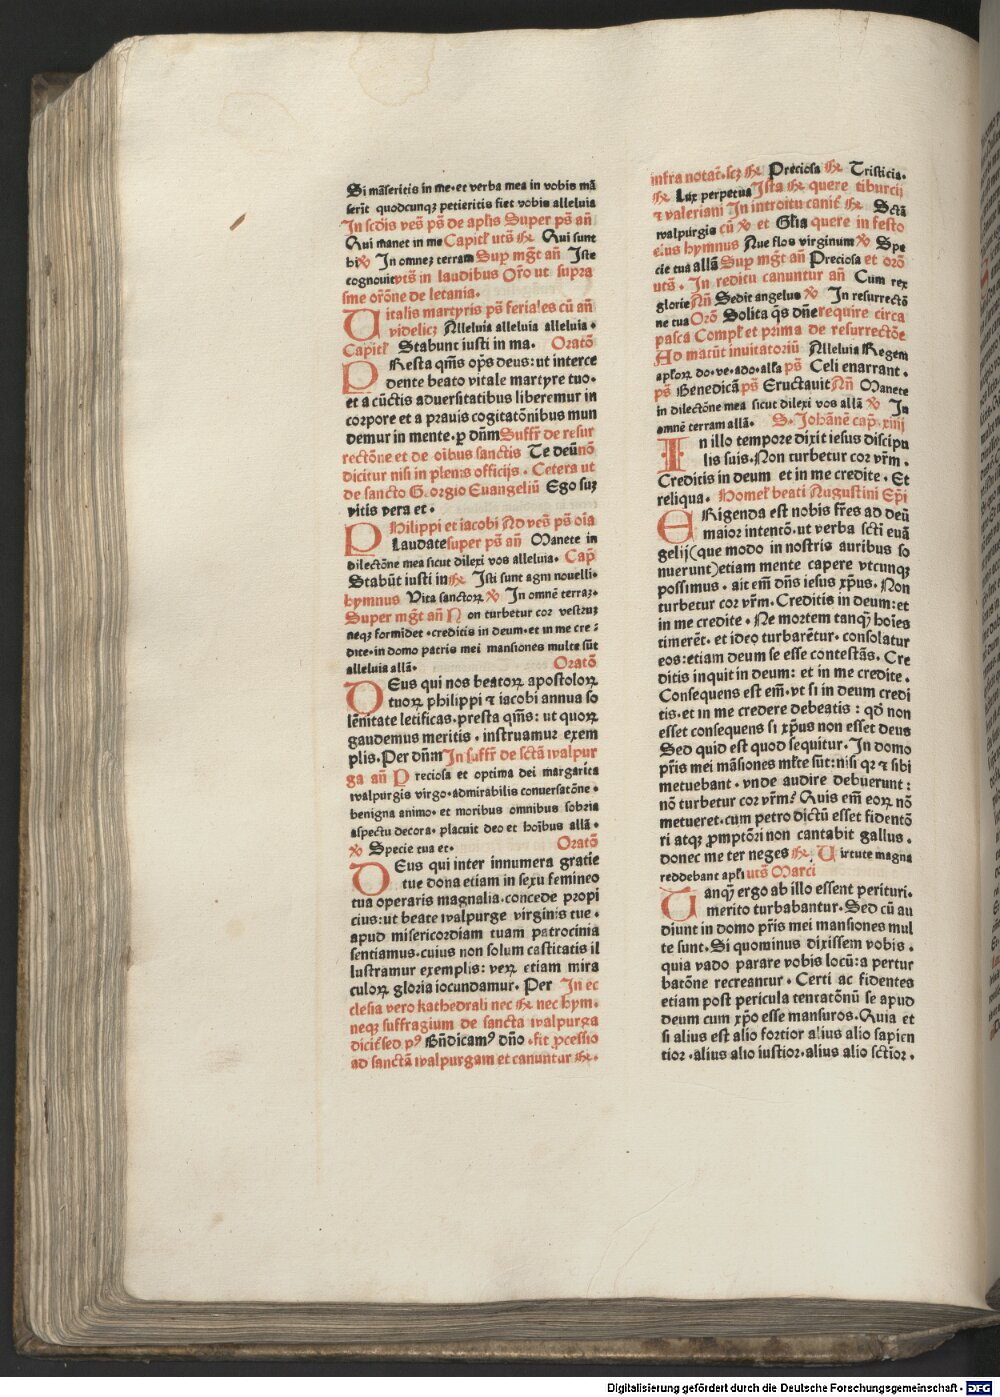 Si mãseritis in me·et verba mea in vobis mã
serĩt quodcunqʒ petieritis fiet vobis alleluia
In scdis ves̃ ps̃ de aplis Super ps̃ añ
Qui manet in me Capitl̃ uts̃ R̃ Qui sunt
hi ℣ In omneʒ terram Sup mg̃t añ Iste
cognouit vts̃ in laudibus Or̃o ut supra
sine or̃õne de letania.
Vitalis martyris ps̃ feriales cũ añ
videlicʒ Alleluia alleluia alleluia·
Capitl̃ Stabunt iusti in ma. Oratõ
PResta qm̃s op̃s deus: ut interce
dente beato vitale martyre tuo·
et a cũctis aduersitatibus liberemur in
corpore et a prauis cogitatõnibus mun
demur in mente·ꝑ dñm Suffr̃ de resur
rectõne et de oĩbus sanctis Te deũ nõ
dicitur nisi in plenis officijs · Cetera ut
de sancto Georgio Euangeliũ Ego suʒ
vitis vera et·
PHilippi et iacobi Ad ves̃ ps̃ oĩa
Laudate super ps̃ añ Manete in
dilectõne mea sicut dilexi vos alleluia· Cap̃
Stabũt iusti in R̃ Isti sunt agni nouelli·
hymnus Vita sanctoꝝ ℣ In omnẽ terraʒ·
Super mg̃t añ Non turbetur cor vestruʒ
neqʒ formidet·creditis in deum·et in me cre=
dite·in domo patris mei mansiones multe sũt
alleluia allã· Oratõ
DEus qui nos beatoꝝ apostoloꝝ
tuoꝝ philippi ⁊ iacobi annua so
lẽnitate letificas·presta qm̃s: ut quoꝝ
gaudemus meritis · instruamur exem
plis·Per dñm In suffr̃ de sctã walpur
ga añ Preciosa et optima dei margarita
walpurgis virgo·admirabilis conuersatõne·
benigna animo·et moribus omnibus sobria
aspectu decora·placuit deo et hoĩbus allã·
℣ Specie tua et· Oratõ
DEus qui inter innumera gratie
tue dona etiam in sexu femineo
tua operaris magnalia·concede propi
cius: ut beate walpurge virginis tue·
apud misericordiam tuam patrocinia
sentiamus·cuius non solum castitatis il
lustramur exemplis: veꝝ etiam mira
culoꝝ gloria iocundamur· Per In ec
clesia vero kathedrali nec R̃ nec hym·
neqʒ suffragium de sancta walpurga
dicit̃ sed pꝰ Bñdicamꝰ dño ·fit ꝓcessio
ad sanctã walpurgam et canuntur R̃·
infra notat̃·scʒ R̃ Preciosa R̃ Tristicia·
R̃ Lux perpetua Ista R̃ quere tiburcij
⁊ valeriani In introitu canit̃ R̃ Sctã
walpurgis cũ ℣ et Glia quere in festo
eius hymnus Aue flos virginum ℣ Spe
cie tua allã Sup mg̃t añ Preciosa et orõ
uts̃ · In reditu canuntur añ Cum rex
glorie Añ Sedit angelus ℣ In resurrectõ
ne tua Orõ Solita q̃s dñe require circa
pasca Compl̃ et prima de resurrectõe
Ad matut̃ inuitatoriũ Alleluia Regem
apl̃oꝝ do·ve·ado·alla ps̃ Celi enarrant·
ps̃ Benedicã ps̃ Eructauit Añ Manete
in dilectõne mea sicut dilexi vos allã ℣ In
omnẽ terram allã· S· Iohãnẽ cap̃· xiiij
In illo tempore dixit iesus discipu
lis suis·Non turbetur cor vr̃m ·
Creditis in deum et in me credite · Et
reliqua· Homel̃ beati Augustini Ep̃i
ERigenda est nobis fr̃es ad deũ
maior intentõ·ut verba scti euã
gelij(que modo in nostris auribus so
nuerunt)etiam mente capere vtcunqʒ
possimus · ait em̃ dñs iesus xp̃us· Non
turbetur cor vr̃m· Creditis in deum: et
in me credite · Ne mortem tanqʒ̃ hoĩes
timerẽt· et ideo turbarẽtur· consolatur
eos: etiam deum se esse contestãs· Cre
ditis inquit in deum: et in me credite·
Consequens est em̃·vt si in deum credi
tis·et in me credere debeatis : qõ non
esset consequens si xp̃us non esset deus
Sed quid est quod sequitur· In domo
pr̃is mei mãsiones ml̃te sũt: nisi qꝛ ⁊ sibi
metuebant· vnde audire debuerunt:
nõ turbetur cor vr̃m? Quis em̃ eoꝝ nõ
metueret·cum petro dictũ esset fidentõ
ri atqʒ ꝓmptõri non cantabit gallus·
donec me ter neges R̃· Virtute magna
reddebant apl̃i uts̃ Marci
Tanqʒ̃ ergo ab illo essent perituri·
merito turbabantur· Sed cũ au
diunt in domo pr̃is mei mansiones mul
te sunt· Si quominus dixissem vobis·
quia vado parare vobis locũ: a pertur
batõne recreantur· Certi ac fidentes
etiam post pericula tentatõnũ se apud
deum cum xp̃o esse mansuros· Quia et
si alius est alio fortior alius alio sapien
tior·alius alio iustior·alius alio sctĩor·
Digitalisierung gefördert durch die Deutsche Forschungsgemeinschaft - DFG